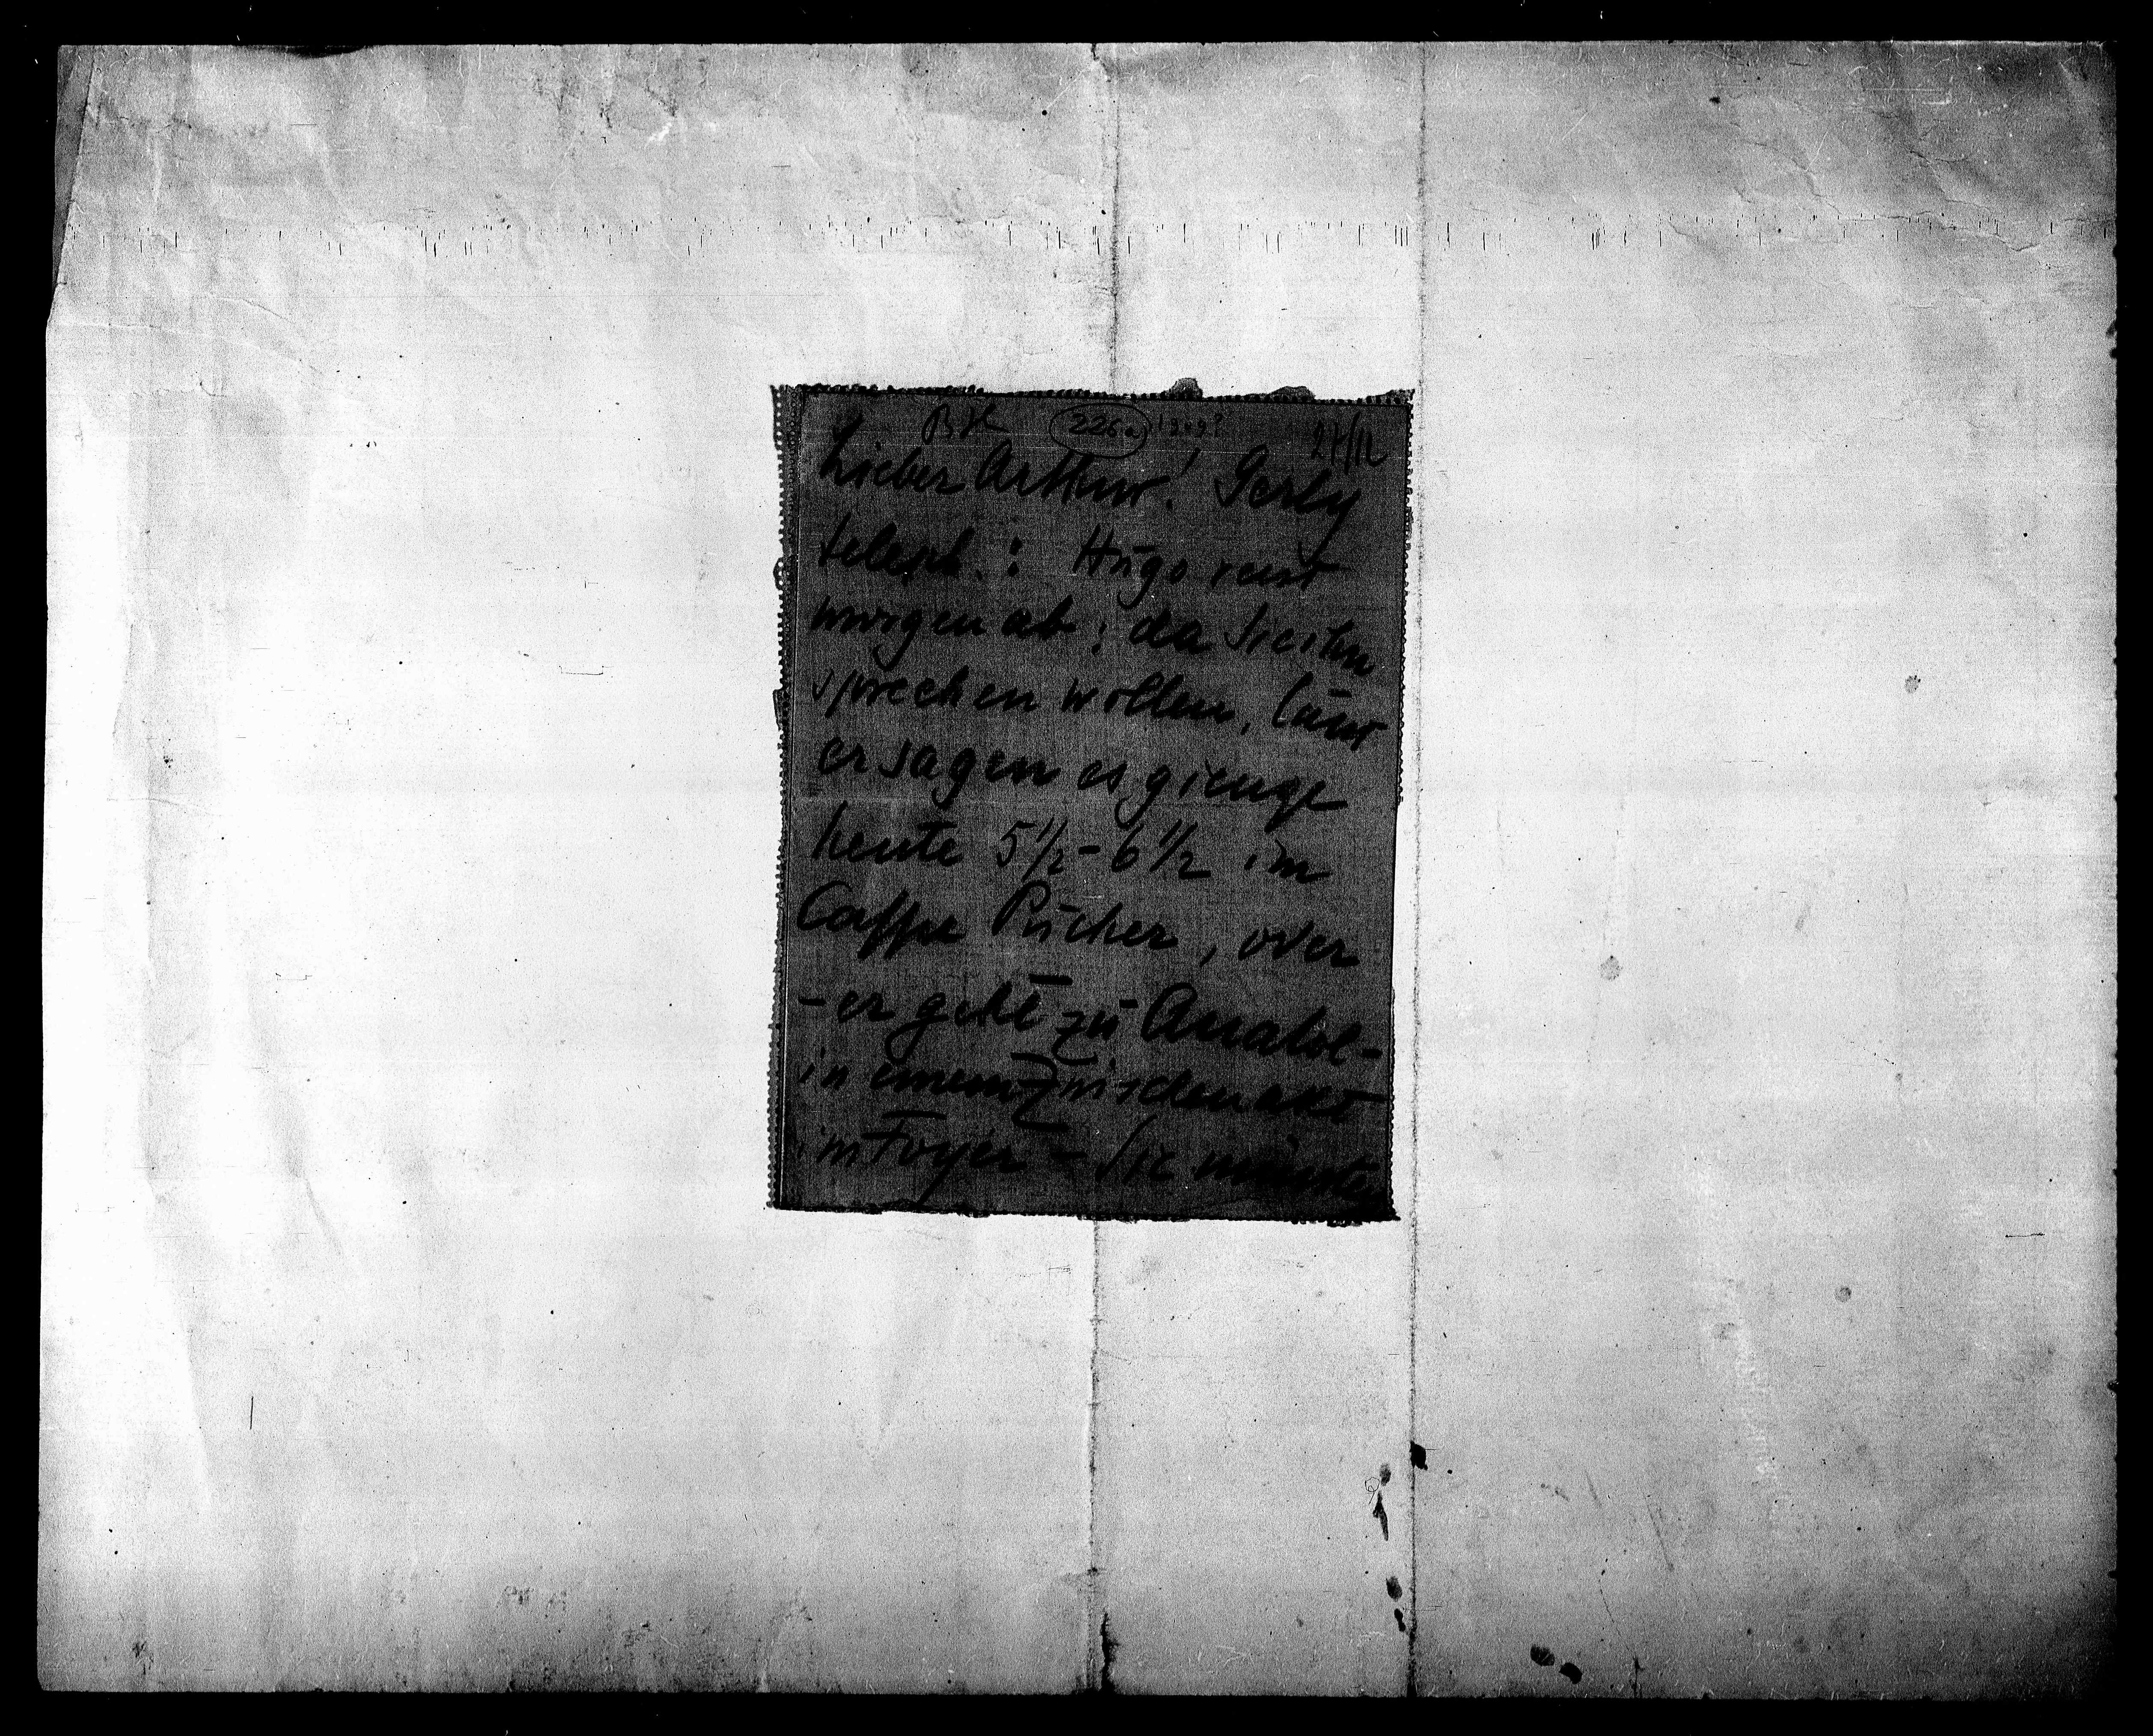 BH 226a 1909? 27/12
Lieber Arthur! Gerty
teleph.: Hugo reist
morgen ab; da Sie ihn
sprechen wollen, lässt
er sagen es gienge
heute 5 1/2 - 6 1/2 im
Caffee Pucher, oder
- er geht zu Anatol -
in einem Zwischenakt
im Foyer - Sie müssten